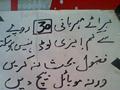 برائے مہربانی 30 روپے
سے کم ایزی لوڈ نہیں
فضول بحث نہ کریں
ورنہ موبائل بیچ دیں